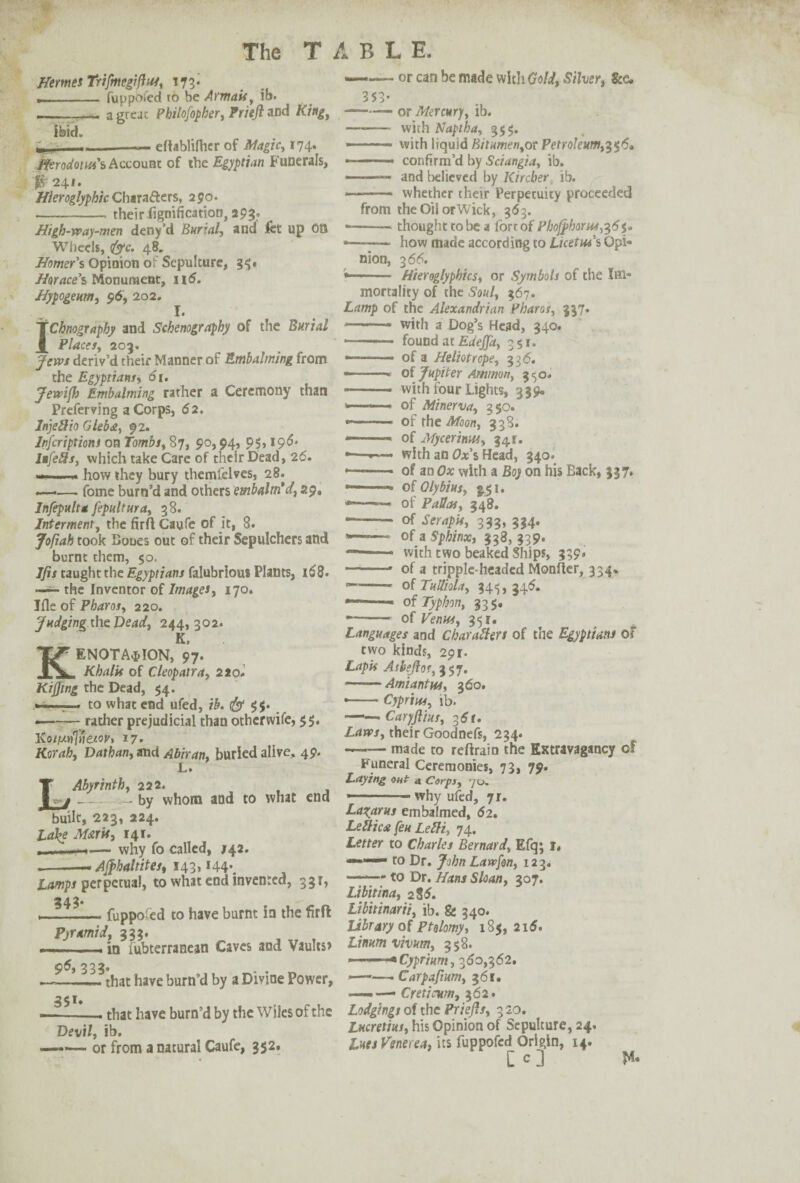 The TABLE.
Hermes Trifmegiſtus, 173.
——— ſuppoſed to be Armais, ib.
——— a great Philoſopher, Prieſt and King,
ibid.
——— eſtabliſher of Magic, 174.
Herodotus's Account of the Egyptian Funerals,
241.
Hieroglyphic Characters, 290.
——— their ſignification, 293.
High-way-men deny'd Burial, and ſet up on
Wheels, &c. 48.
Homer's Opinion of Sepulture, 35.
Horace's Monument, 116.
Hypogeum, 96, 202.
I.
IChnography and Schenography of the Burial
Places, 203.
Jews deriv'd their Manner of Embalming from
the Egyptians, 61.
Jewiſh Embalming rather a Ceremony than
Preſerving a Corps, 62.
Injectio Glebæ, 92.
Inſcriptions on Tombs, 87, 90, 94, 95, 196.
Inſects, which take Care of their Dead, 26.
——— how they bury themſelves, 28.
——— ſome burn'd and others embalm'd, 29.
Inſepulta ſepultura, 38.
Interment, the firſt Cauſe of it, 8.
Joſiah took Bones out of their Sepulchers and
burnt them, 50.
Iſis taught the Egyptians ſalubrious Plants, 168.
—— the Inventor of Images, 170.
Iſle of Pharos, 220.
Judging the Dead, 244, 302.
K.
KENOTAΦION, 97.
Khalis of Cleopatra, 220.
Kiſſing the Dead, 54.
——— to what end uſed, ib. & 55.
——— rather prejudicial than otherwiſe, 55.
Κοιμητήριον, 17.
Korah, Dathan, and Abiran, buried alive, 49.
L.
LAbyrinth, 222.
——— by whom and to what end
built, 223, 224.
Lake Mæris, 141.
——— why ſo called, 142.
——— Aſphaltites, 143, 144.
Lamps perpetual, to what end invented, 331,
343.
——— ſuppoſed to have burnt in the firſt
Pyramid, 333.
——— in ſubterranean Caves and Vaults,
96, 333.
——— that have burn'd by a Divine Power,
351.
——— that have burn'd by the Wiles of the
Devil, ib.
——— or from a natural Cauſe, 352.
——— or can be made with Gold, Silver, &c.
353.
——— or Mercury, ib.
——— with Naptha, 355.
——— with liquid Bitumen, or Petroleum, 356.
——— confirm'd by Sciangia, ib.
——— and believed by Kircher, ib.
——— whether their Perpetuity proceeded
from the Oil or Wick, 363.
——— thought to be a ſort of Phoſphorus, 365.
——— how made according to Licetus's Opi-
nion, 366.
——— Hieroglyphics, or Symbols of the Im-
mortality of the Soul, 367.
Lamp of the Alexandrian Pharos, 337.
——— with a Dog's Head, 340.
——— found at Edeſſa, 351.
——— of a Heliotrope, 336.
——— of Jupiter Ammon, 350.
——— with four Lights, 339.
——— of Minerva, 350.
——— of the Moon, 338.
——— of Mycerinus, 341.
——— with an Ox's Head, 340.
——— of an Ox with a Boy on his Back, 337.
——— of Olybius, 351.
——— of Pallas, 348.
——— of Serapis, 333, 334.
——— of a Sphinx, 338, 339.
——— with two beaked Ships, 339.
——— of a tripple-headed Monſter, 334.
——— of Tulliola, 345, 346.
——— of Typhon, 335.
——— of Venus, 351.
Languages and Characters of the Egyptians of
two kinds, 291.
Lapis Asbeſtos, 357.
——— Amiantus, 360.
——— Cyprius, ib.
——— Caryſtius, 361.
Laws, their Goodneſs, 234.
——— made to reſtrain the Extravagancy of
Funeral Ceremonies, 73, 79.
Laying out a Corps, 70.
——— why uſed, 71.
Lazarus embalmed, 62.
Lecticæ ſeu Lecti, 74.
Letter to Charles Bernard, Eſq; 1.
——— to Dr. John Lawſon, 123.
——— to Dr. Hans Sloan, 307.
Libitina, 286.
Libitinarii, ib. & 340.
Library of Ptolomy, 185, 216.
Linum vivum, 358.
——— Cyprium, 360, 362.
——— Carpaſium, 361.
——— Creticum, 362.
Lodgings of the Prieſts, 320.
Lucretius, his Opinion of Sepulture, 24.
Lues Venerea, its ſuppoſed Origin, 14.
[ c ] M.